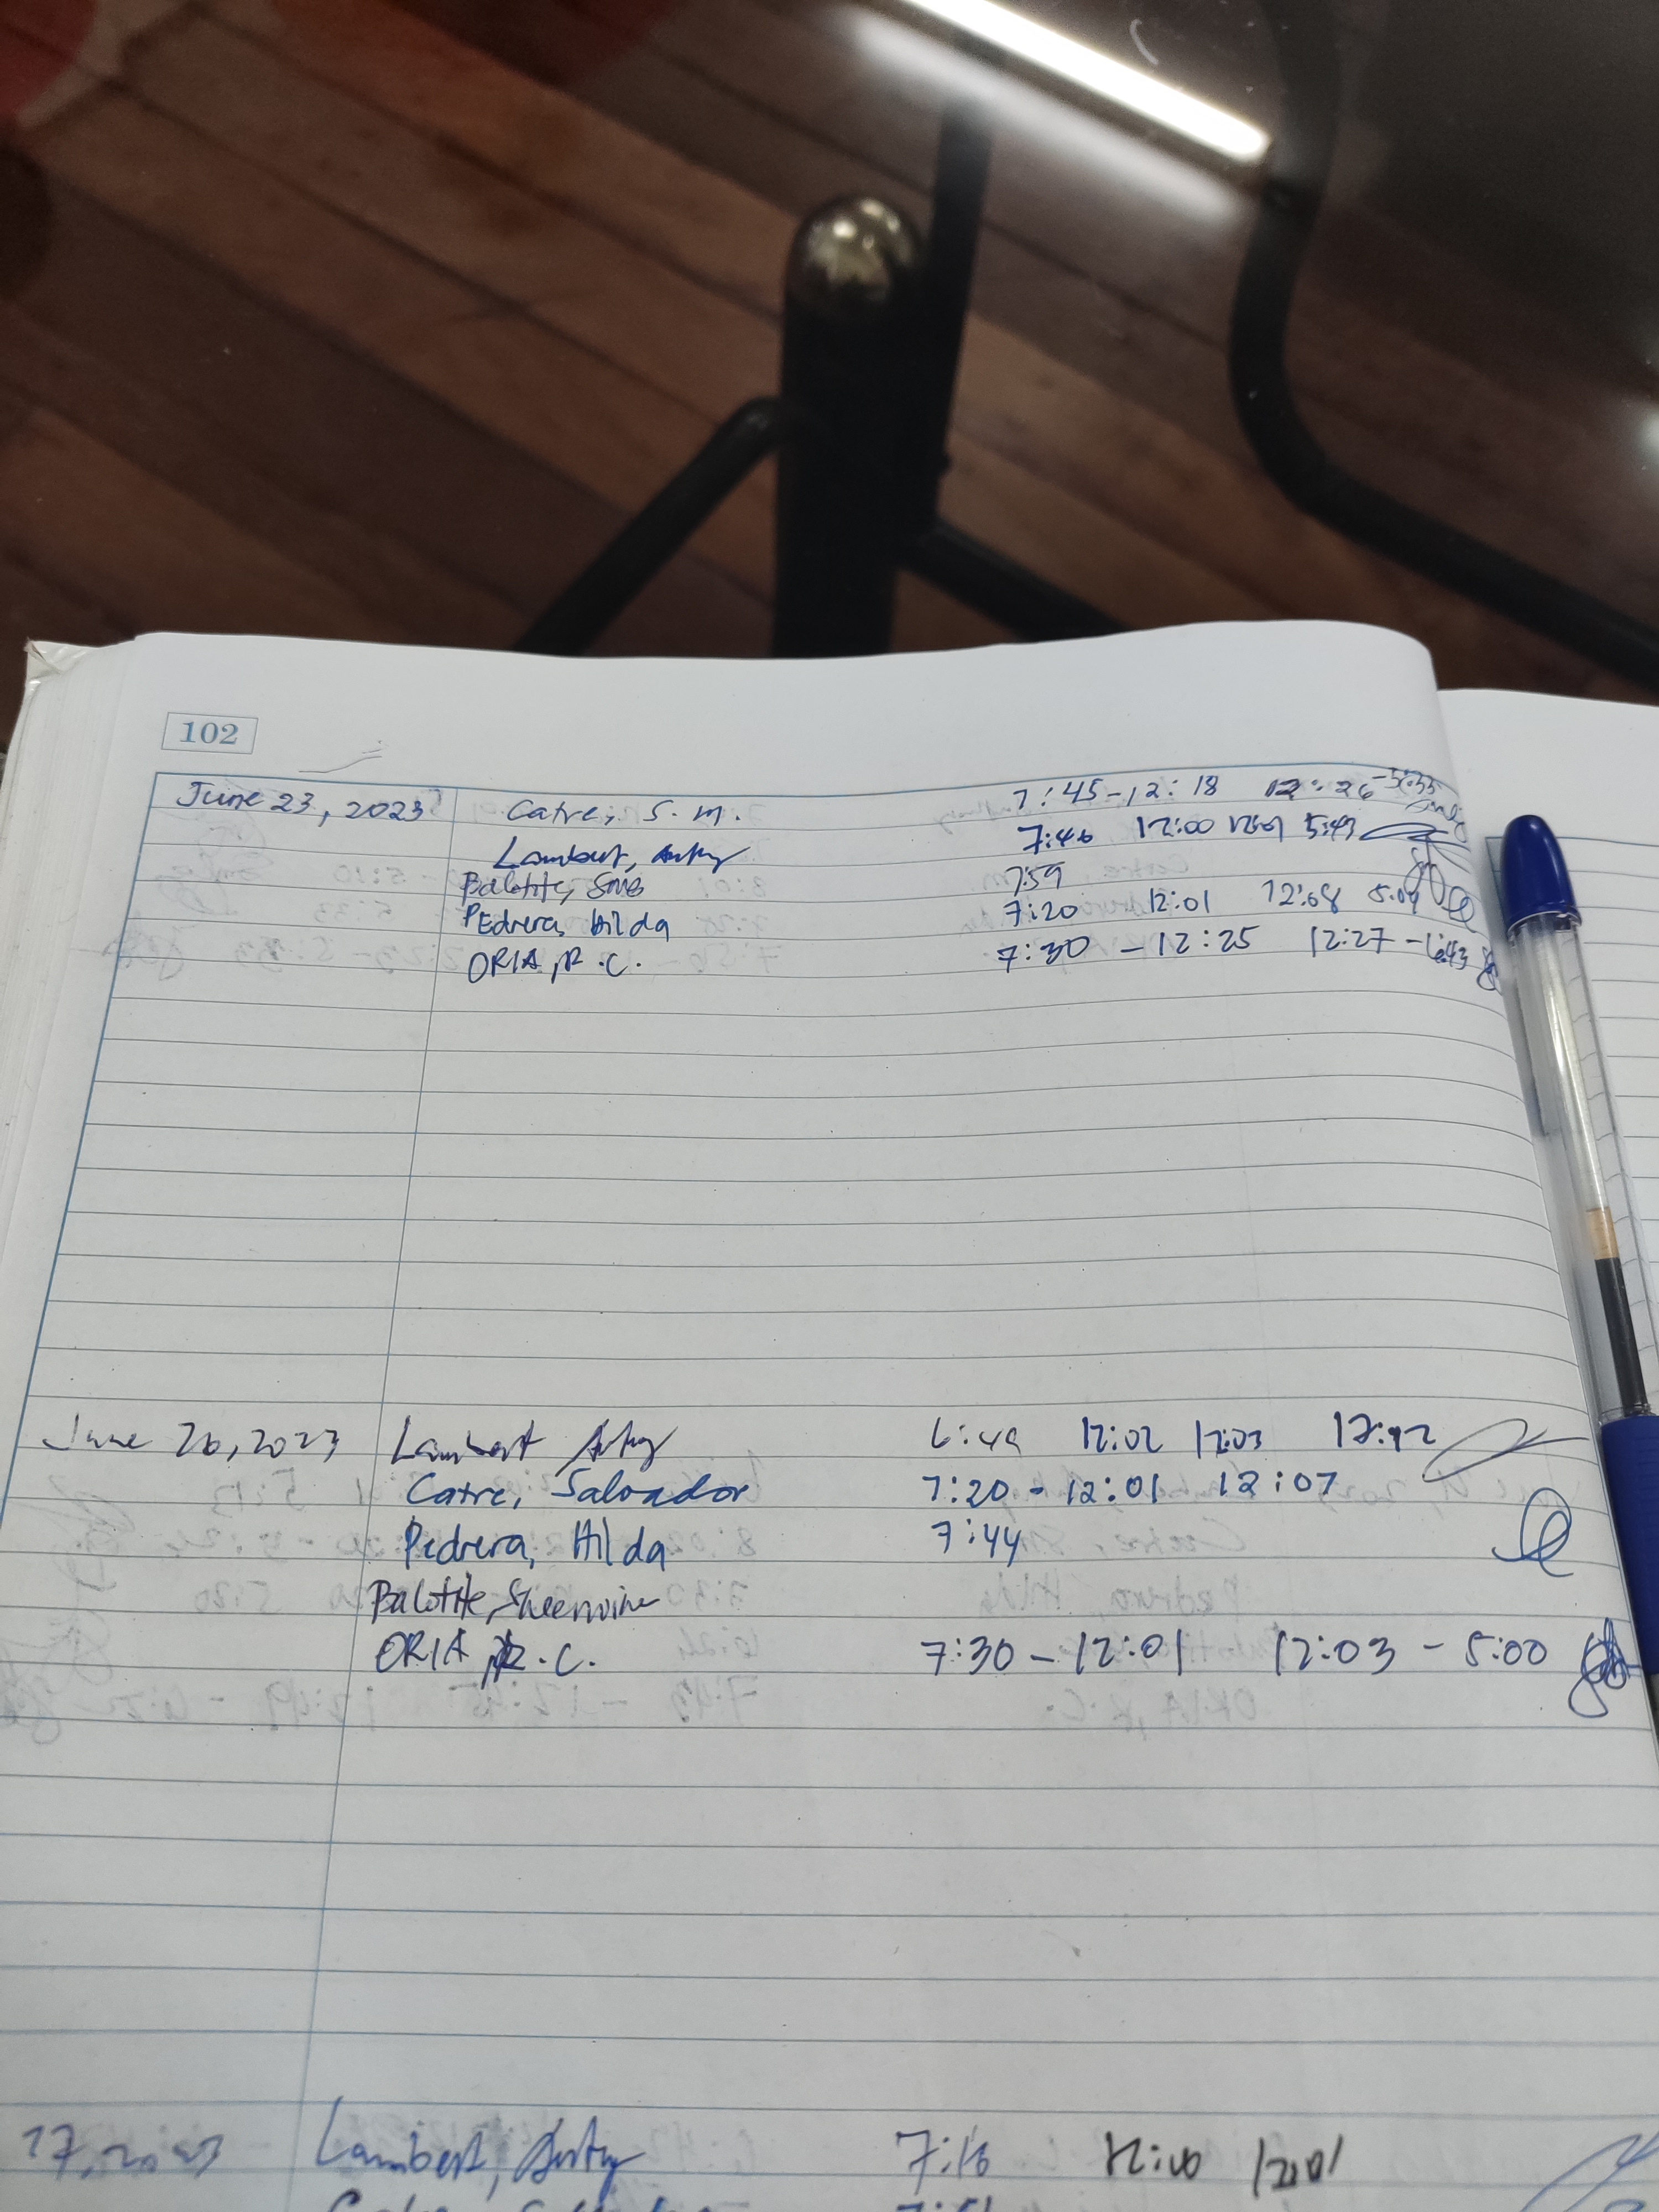 102
June 23, 2023 Catre, S. M. 7:45-12:18 12:26-5:33
Lambert, 7:46 12:00 12:01 5:49
Balotite, 7:59
Pedrera, Hilda 7:20 12:01 12:08 5:04
ORIA, R.C. 7:30 - 12:25 12:27 -
June 26, 2023 Lambert 6:49 12:02 12:03
Catre, Salvador 7:20 - 12:01 12:07
Pedrera, Hilda 7:44
Balotite,
ORIA, R.C. 7:30 - 12:01 12:03 - 5:00
Lambert, 7:16 12:00 12:01